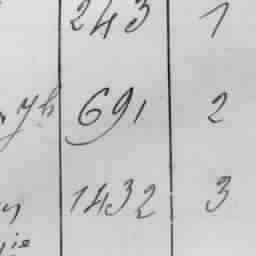 243 1
yh 691 2
1432 3